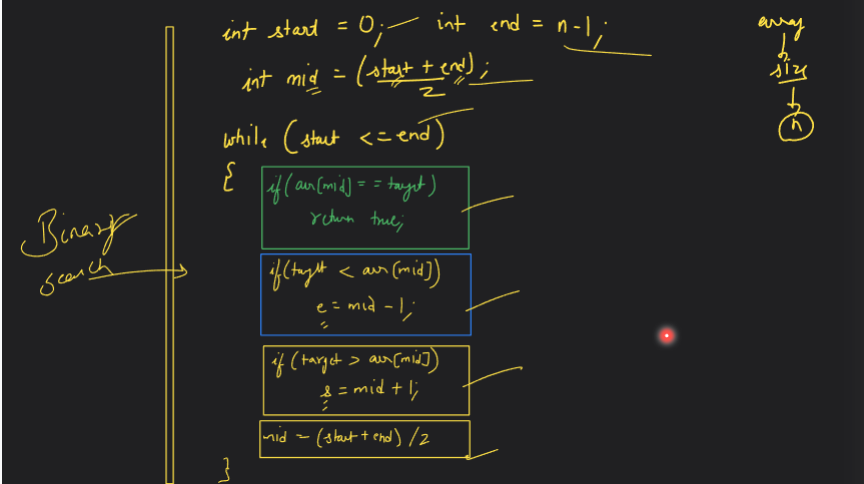 int start = 0; int end = n-1;
int mid = (start + end);
2
while (start <= end)
{
if (arr[mid] == target)
return true;
if (target < arr[mid])
e = mid - 1;
if (target > arr[mid])
s = mid + 1;
mid = (start + end) / 2
}
Binary
search
array
size
n